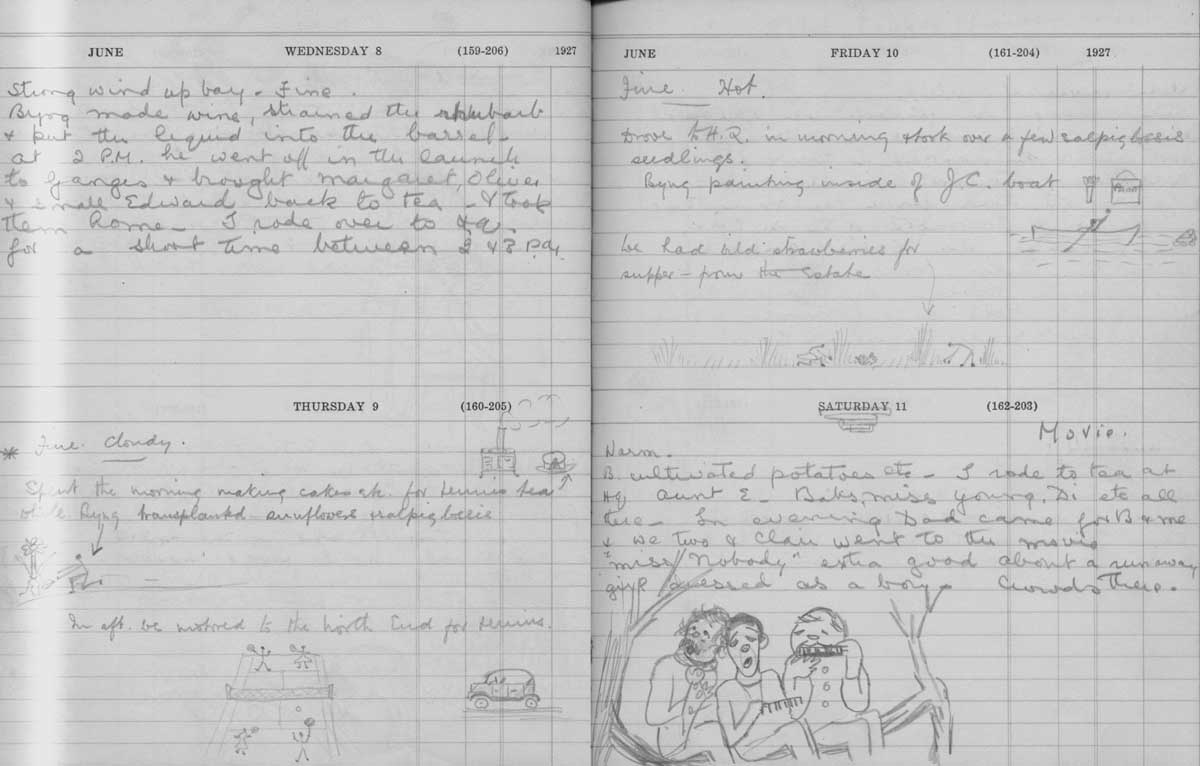 JUNE WEDNESDAY 8 (159-206) 1927
Strong wind up bay - Fine.
Byng made wine, strained the rhubarb
& put the liquid into the barrel -
at 2 P.M. he went off in the launch
to Ganges & brought Margaret, Oliver
& small Edward back to tea - & took
them home - I rode over to
for a short time between 2 & 3 P.M.
THURSDAY 9 (160-205)
* Fine. Cloudy.
Spent the morning making cakes etc. for tennis tea
while Byng transplanted sunflowers & salpiglossis
In aft. we motored to the North End for tennis.
JUNE FRIDAY 10 (161-204) 1927
Fine Hot.
Drove to H.Q. in morning & took over a few salpiglossis
seedlings.
Byng painting inside of J.C. boat
PAINT
We had wild strawberries for
supper - from the Estate
SATURDAY 11 (162-203)
Movie.
Warm.
B. cultivated potatoes etc - I rode to tea at
HQ Aunt E - Babs, Miss Young, Di etc all
there - In evening Dad came for B & me
& we two & Clare went to the movie
"Miss Nobody" extra good about a runaway
girl dressed as a boy - Crowds there.